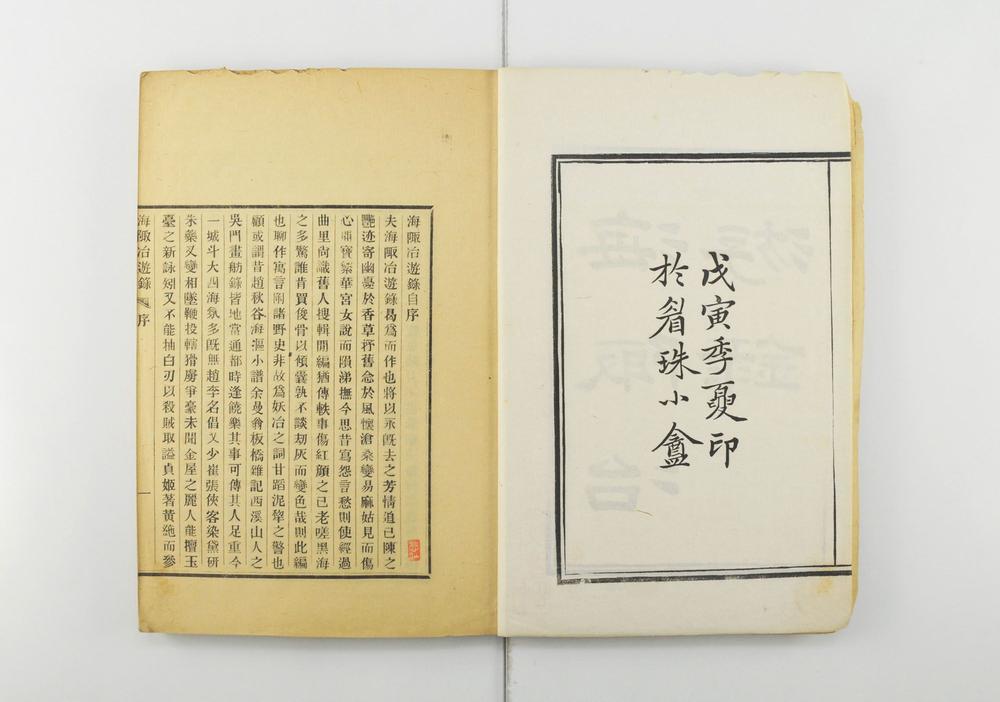 戊寅季夏印
於眉珠小盦
海陬冶遊錄自序
夫海陬冶遊錄曷爲而作也將以永旣去之芳情追已陳之
艷迹寄幽憂於香草抒舊念於風懷滄桑變易麻姑見而傷
心開寶繁華宮女說而隕涕撫今思昔寫怨言愁則使經過
曲里尙識舊人搜輯閒編猶傳軼事傷紅顏之已老嗟黑海
之多驚誰肯買俊骨以傾囊孰不談刧灰而變色哉則此編
也聊作寓言附諸野史非故爲妖冶之詞甘蹈泥犂之警也
顧或謂昔趙秋谷海漚小譜余曼翁板橋雜記西溪山人之
吳門畫舫錄皆地當通都時逢饒樂其事可傳其人足重今
一城斗大四海氛多旣無趙李名倡又少崔張俠客染黛研
朱藥叉變相墜鞭投轄猾虜爭豪未聞金屋之麗人能擅玉
臺之新詠矧又不能抽白刃以殺賊取謚貞姬著黃絁而參
海陬冶遊錄 序 一